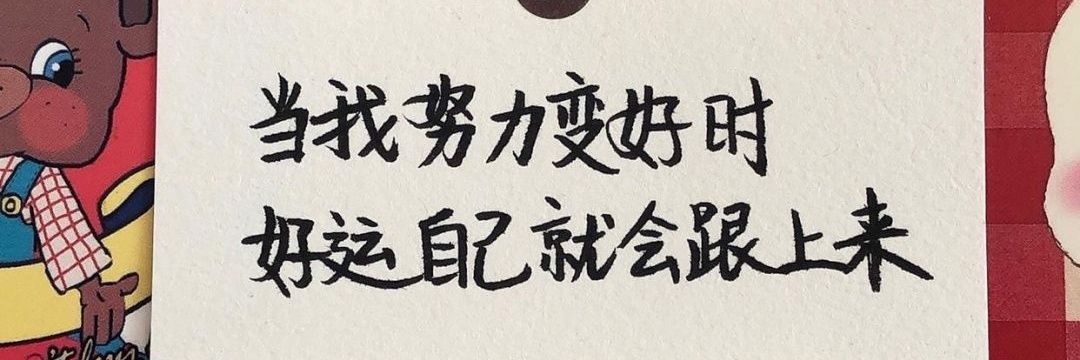 当我努力变好时
好运自己就会跟上来